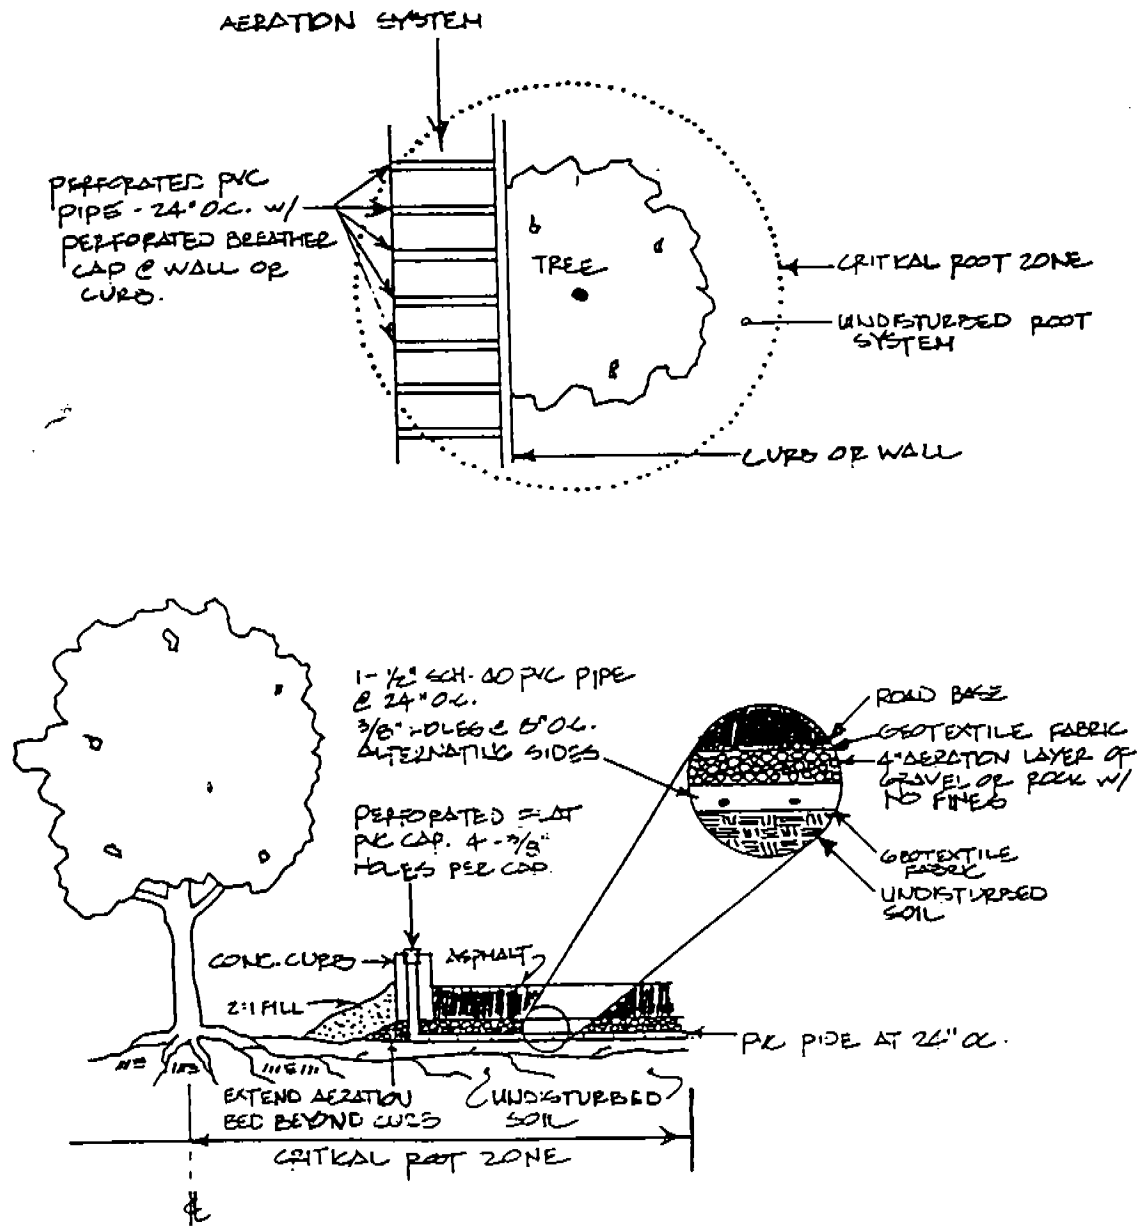 AERATION SYSTEM
PERFORATED PVC
PIPE - 24" O.C. W/
PERFORATED BREATHER
CAP @ WALL OR
CURB.
TREE
CRITICAL ROOT ZONE
UNDISTURBED ROOT
SYSTEM
CURB OR WALL
1-1/2" SCH. 40 PVC PIPE
@ 24" O.C.
3/8" HOLES @ 8" O.C.
ALTERNATING SIDES
ROAD BASE
GEOTEXTILE FABRIC
4" AERATION LAYER OF
GRAVEL OR ROCK W/
NO FINES
PERFORATED FLAT
PVC CAP. 4 - 3/8"
HOLES PER CAP.
GEOTEXTILE
FABRIC
UNDISTURBED
SOIL
CONC. CURB
ASPHALT
2:1 FILL
PVC PIPE AT 24" OC.
EXTEND AERATION
BED BEYOND CURB
UNDISTURBED
SOIL
CRITICAL ROOT ZONE
℄